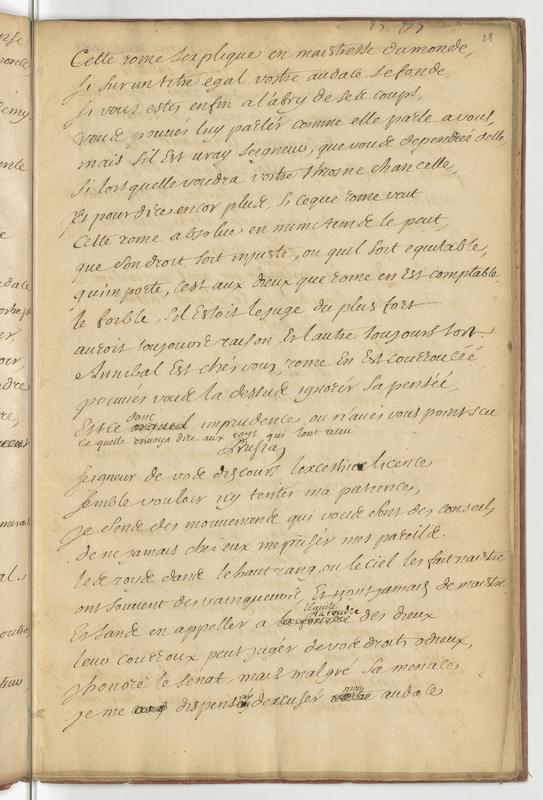 21
Cette rome sexplique en maistresse du monde,
Si sur un titre egal vostre audace se fonde,
Si vous estes enfin a l'abry de ses coups,
Vous pouués luy parler comme elle parle a vous,
mais sil est vray seigneur, que vous dependiés delle,
Si lors quelle voudra vostre throsne chancelle,
Et pour dire encor plus, si ceque rome veut
Cette rome absolue en mesme tems le peut,
que son droit soit injuste, ou quil soit equitable,
qu'importe, c'est aux dieux que rome en est comptable,
le foible, sil estoit le juge du plus fort
auroit toujours raison, et l'autre toujours tort.
Annibal est chés vous, rome en est courroucée,
pouués vous la dessus ignorer sa pensée,
Est ce donc imprudence, ou n'aués vous point sceu
ce quelle enuoya dire aux roys qui l'ont receu
Prusias
Seigneur de vos discours l'excessiue licence
semble vouloir icy tenter ma patience,
Je sens des mouuements qui vous sont des conseils
de ne jamais chez eux mepriser mes pareils.
les roys dans le haut rang, ou le ciel les fait naistre
ont souuent des vainqueurs, Et n'ont jamais de maistre
Et sans en appeller a l'equité des dieux
leur courroux peut juger de vos droits odieux,
J'honore le senat, mais malgré sa menace
Je me dispenseray d'excuser mon audace